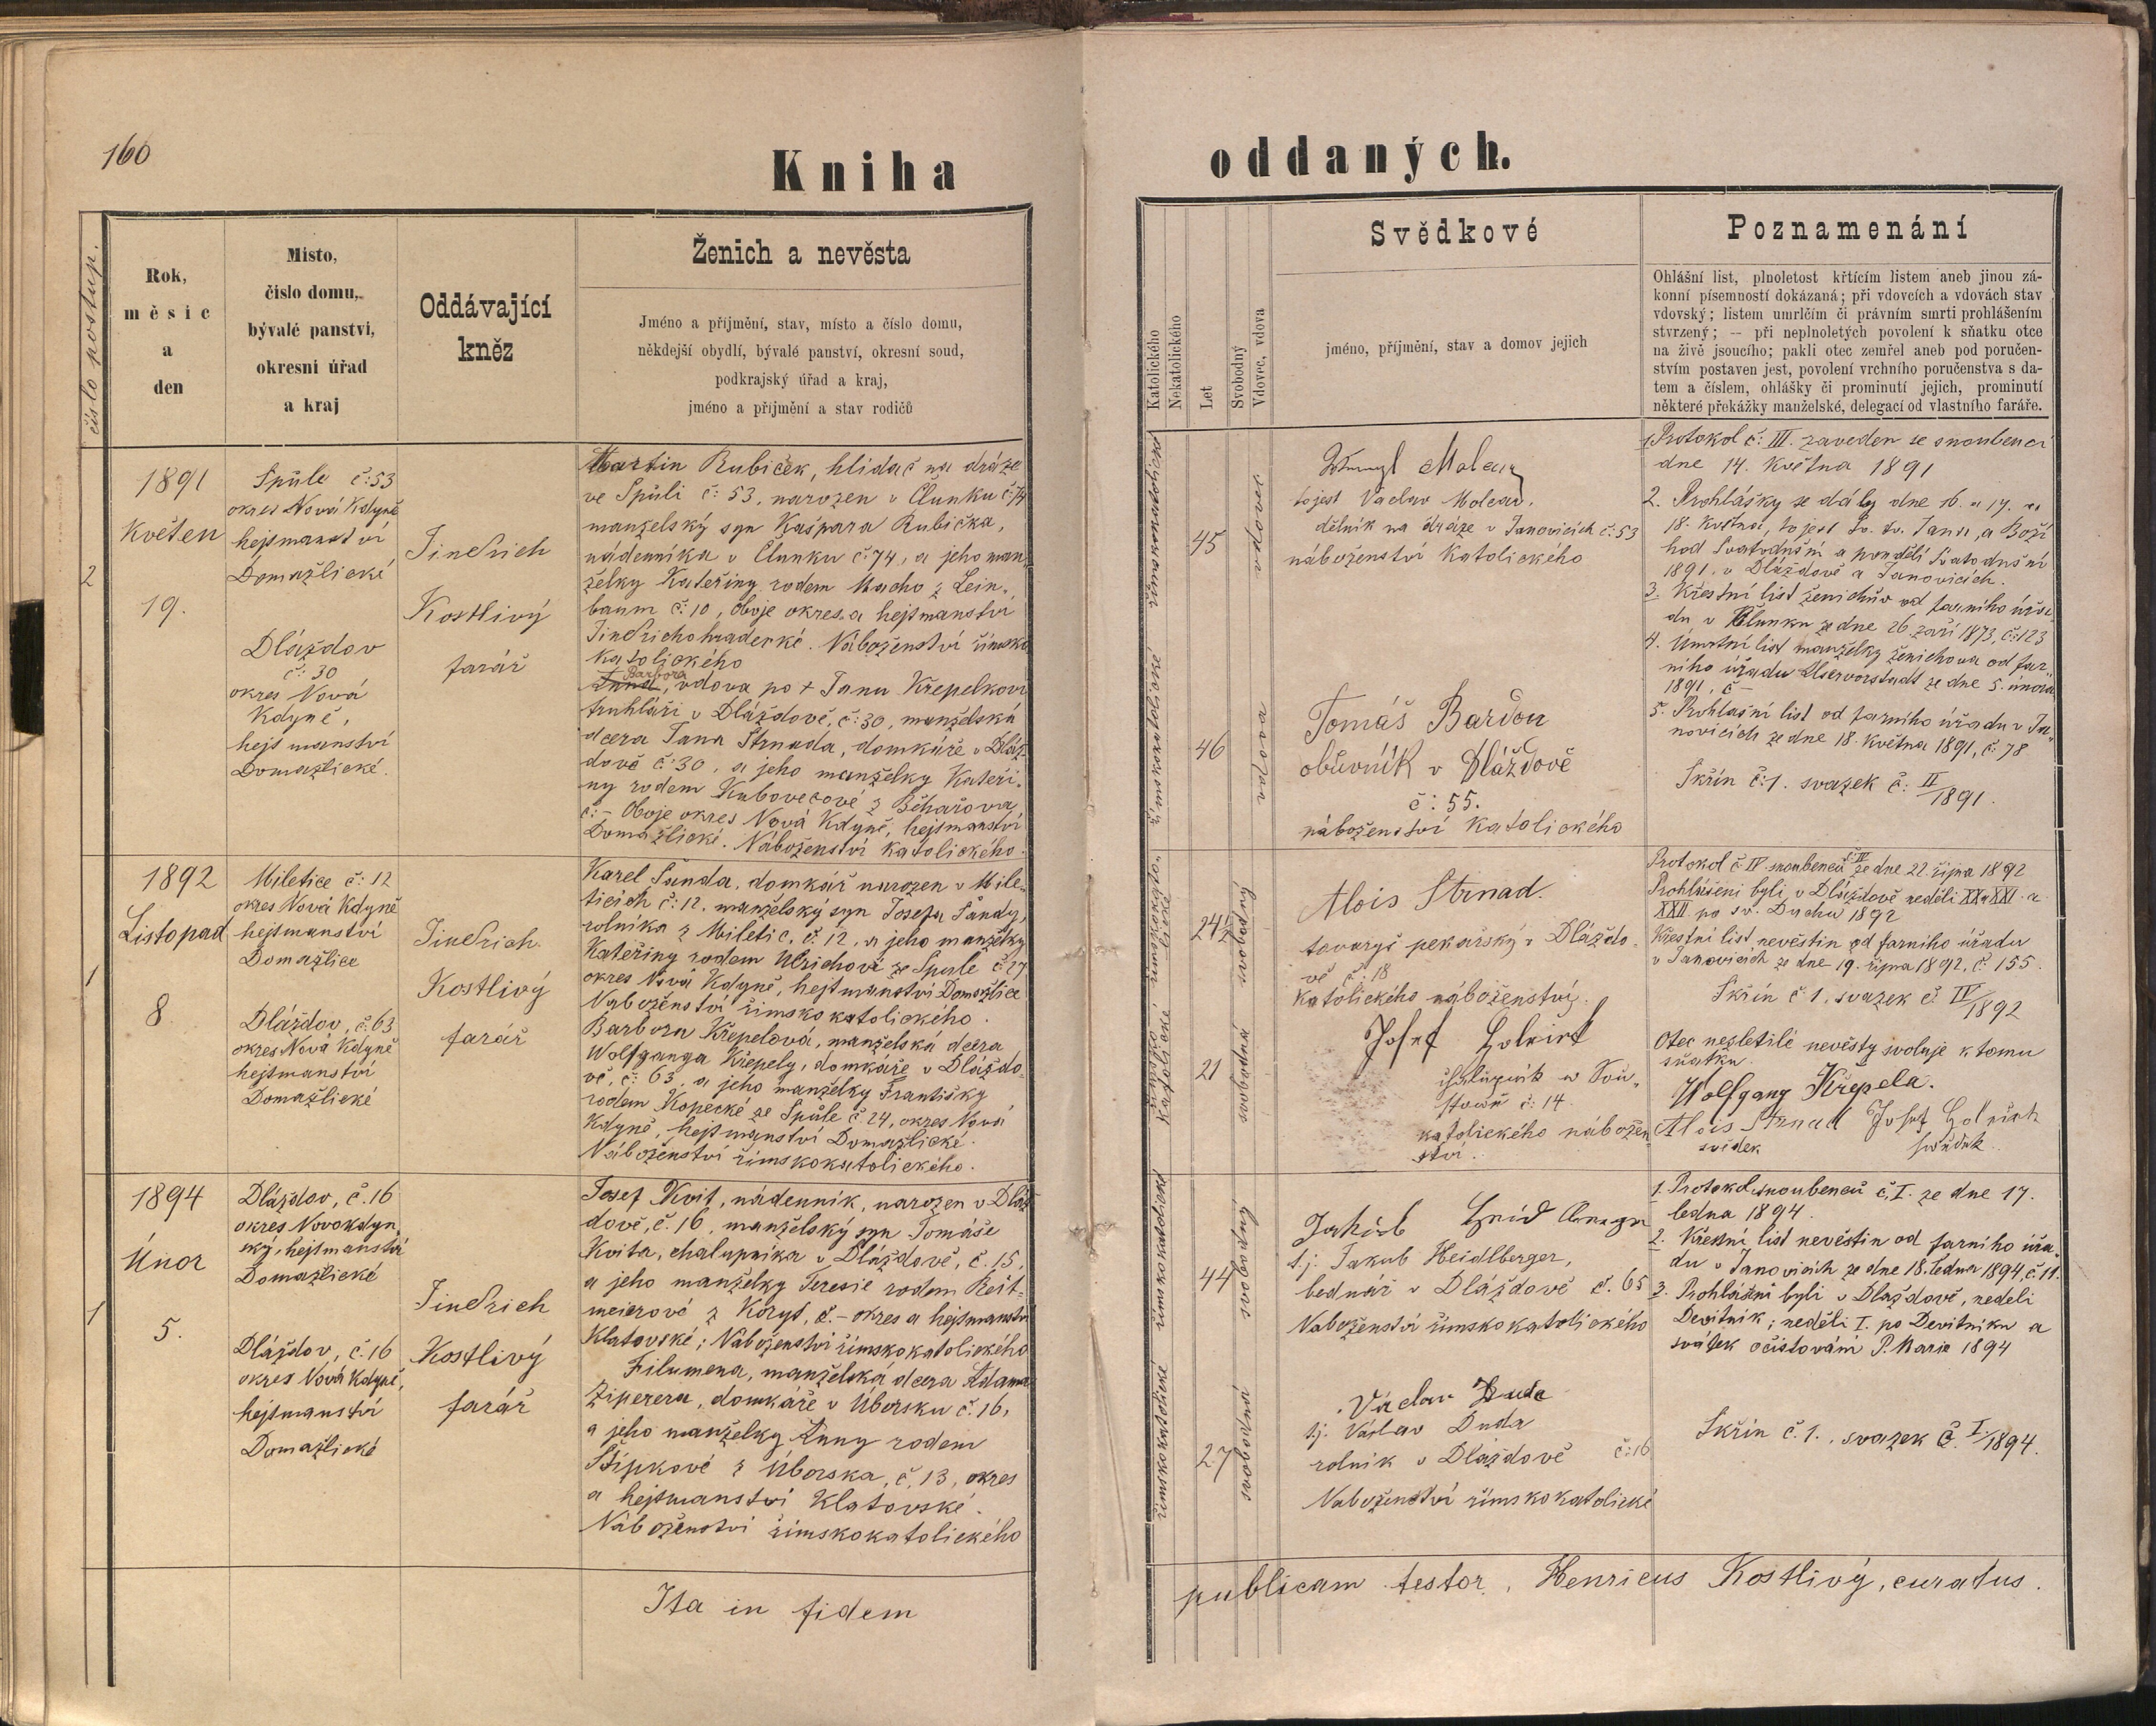 160
Kniha
oddaných.
číslo postup.
Rok,
měsíc
a
den
Místo,
číslo domu,
bývalé panství,
okresní úřad
a kraj
Oddávající
kněz
Ženich a nevěsta
Jméno a příjmění, stav, místo a číslo domu,
někdejší obydlí, bývalé panství, okresní soud,
podkrajský úřad a kraj,
jméno a příjmění a stav rodičů
Katolického
Nekatolického
Let
Svobodný
Vdovec, vdova
Svědkové
jméno, příjmění, stav a domov jejich
Poznamenání
Ohlášní list, plnoletost křtícím listem aneb jinou zá-
konní písemností dokázaná; při vdovcích a vdovách stav
vdovský; listem umrlčím či právním smrti prohlášením
stvrzený; — při neplnoletých povolení k sňatku otce
na živě jsoucího; pakli otec zemřel aneb pod poručen-
stvím postaven jest, povolení vrchního poručenstva s da-
tem a číslem, ohlášky či prominutí jejich, prominutí
některé překážky manželské, delegací od vlastního faráře.
2
1891
Květen
19.
Spůle č: 53
okres Nová Kdyně
hejtmanství
Domažlické
Dláždov
č: 30
okres Nová
Kdyně,
hejtmanství
Domažlické.
Jindřich
Kostlivý
farář
Martin Kubiček, hlídač na dráze
ve Spůli č: 53, narozen v Člunku č: 74
manželský syn Kašpara Kubička,
nádenníka v Člunku č. 74, a jeho man-
želky Kateřiny rodem Macho z Lein-
baum č: 10, Oboje okres a hejtmanství
Jindřichohradecké. Náboženství římsko
katolického
Barbora
Anna, vdova po + Janu Křepelkovi
truhláři v Dláždově, č: 30, manželská
dcera Jana Strnada, domkáře v Dláž-
dově č: 30, a jeho manželky Kateři-
ny rodem Kubovecové z Běhařova
č: – Oboje okres Nová Kdyně, hejtmanství
Domažlické. Náboženství katolického.
římskokatolické
45
vdovec
římskokatolické
46
vdova
tojest Václav
dělník na dráze v Janovicích č: 53
náboženství Katolického
Tomáš Bardon
obůvník v Dláždově
č: 55.
náboženství katolického
1. Protokol č: III. zaveden se snoubenci
dne 14. Května 1891
2. Prohlášky se dály dne 16. a 17. a
18. Května, to jest Sv. Jana, a Boží
hod Svatodušní a pondělí Svatodušní
1891, v Dláždově a Janovicích.
3. Křestní list ženichův od farního úřa-
du v Člunku ze dne 26. září 1873, č: 123
4. Úmrtní list manželky ženichova od far-
ního úřadu Alservorstadt ze dne 5. února
1891, č –
5. Prohlašní list od farního úřadu v Ja-
novicích ze dne 18. Května 1891, č: 78
Skřín č: 1. svazek č: II/1891.
1
1892
Listopad
8.
Miletice č: 12
okres Nová Kdyně
hejtmanství
Domažlice
Dláždov, č: 63
okres Nová Kdyně
hejtmanství
Domažlické
Jindřich
Kostlivý
farář
Karel Šanda, domkář narozen v Mile-
ticích č: 12, manželský syn Josefa Šandy,
rolníka z Miletic, č. 12, a jeho manželky
Kateřiny rodem Ulrichové ze Spule č: 27
okres Nová Kdyně, hejtmanství Domažlice
Náboženství římsko katolického.
Barbora Křepelová, manželská dcera
Wolfganga Křepely, domkáře v Dláždo-
vě, č: 63, a jeho manželky Františky
rodem Kopecké ze Spůle č: 24, okres Nová
Kdyně, hejtmanství Domažlické.
Náboženství římskokatolického.
24½
svobodný
21
svobodná
Alois Strnad.
tovaryš pekařský v Dláždo-
vě č: 18
katolického náboženství.
Josef
č: 14
katolického nábožen-
ství.
Protokol č IV snoubenců ze dne 22. října 1892
Prohlášeni byli v Dláždově neděli XX a XXI a
XXII po sv. Duchu 1892
Křestní list nevěstin od farního úřadu
v Janovicích ze dne 19. října 1892, č: 155.
Skřín č 1. svazek č: IV/1892
Otec nezletilé nevěsty svoluje k tomu
sňatku.
Wolfgang Křepela.
Alois Strnad
svědek
Josef
svědek
1
1894
Únor
5.
Dláždov, č. 16
okres Novokdyn-
ský, hejtmanství
Domažlické
Dláždov, č. 16
okres Nová Kdyně,
hejtmanství
Domažlické
Jindřich
Kostlivý
farář
Josef Kvit, nádenník, narozen v Dláž-
dově, č. 16, manželský syn Tomáše
Kvita, chalupníka v Dláždově, č. 15,
a jeho manželky Teresie rodem Reit-
meierové z Koryt, č. – okres a hejtmanství
Klatovské; Náboženství římskokatolického
Filumena, manželská dcera Adama
Ziperera, domkáře v Úborsku č. 16,
a jeho manželky Anny rodem
Štípkové z Úborska, č. 13, okres
a hejtmanství Klatovské.
Náboženství římskokatolického
římskokatolické
44
svobodný
římskokatolické
27
svobodná
Jakob
t.j. Jakub Heidlberger,
bednář v Dláždově č. 65
Náboženství římskokatolického
Václav Duda
t.j. Václav Duda
rolník v Dláždově č: 16
Náboženství římskokatolické
1. Protokol snoubenců č. I. ze dne 17.
ledna 1894.
2. Křestní list nevěstin od farního úřa-
du v Janovicích ze dne 18. ledna 1894, č. 11.
3. Prohlášeni byli v Dlaždově, neděli
Devítník; neděli I. po Devítníku a
svátek očisťování P. Marie 1894
Skřín č. 1., svazek č. I./1894.
Ita in fidem
publicam testor, Henricus Kostlivý, curatus.